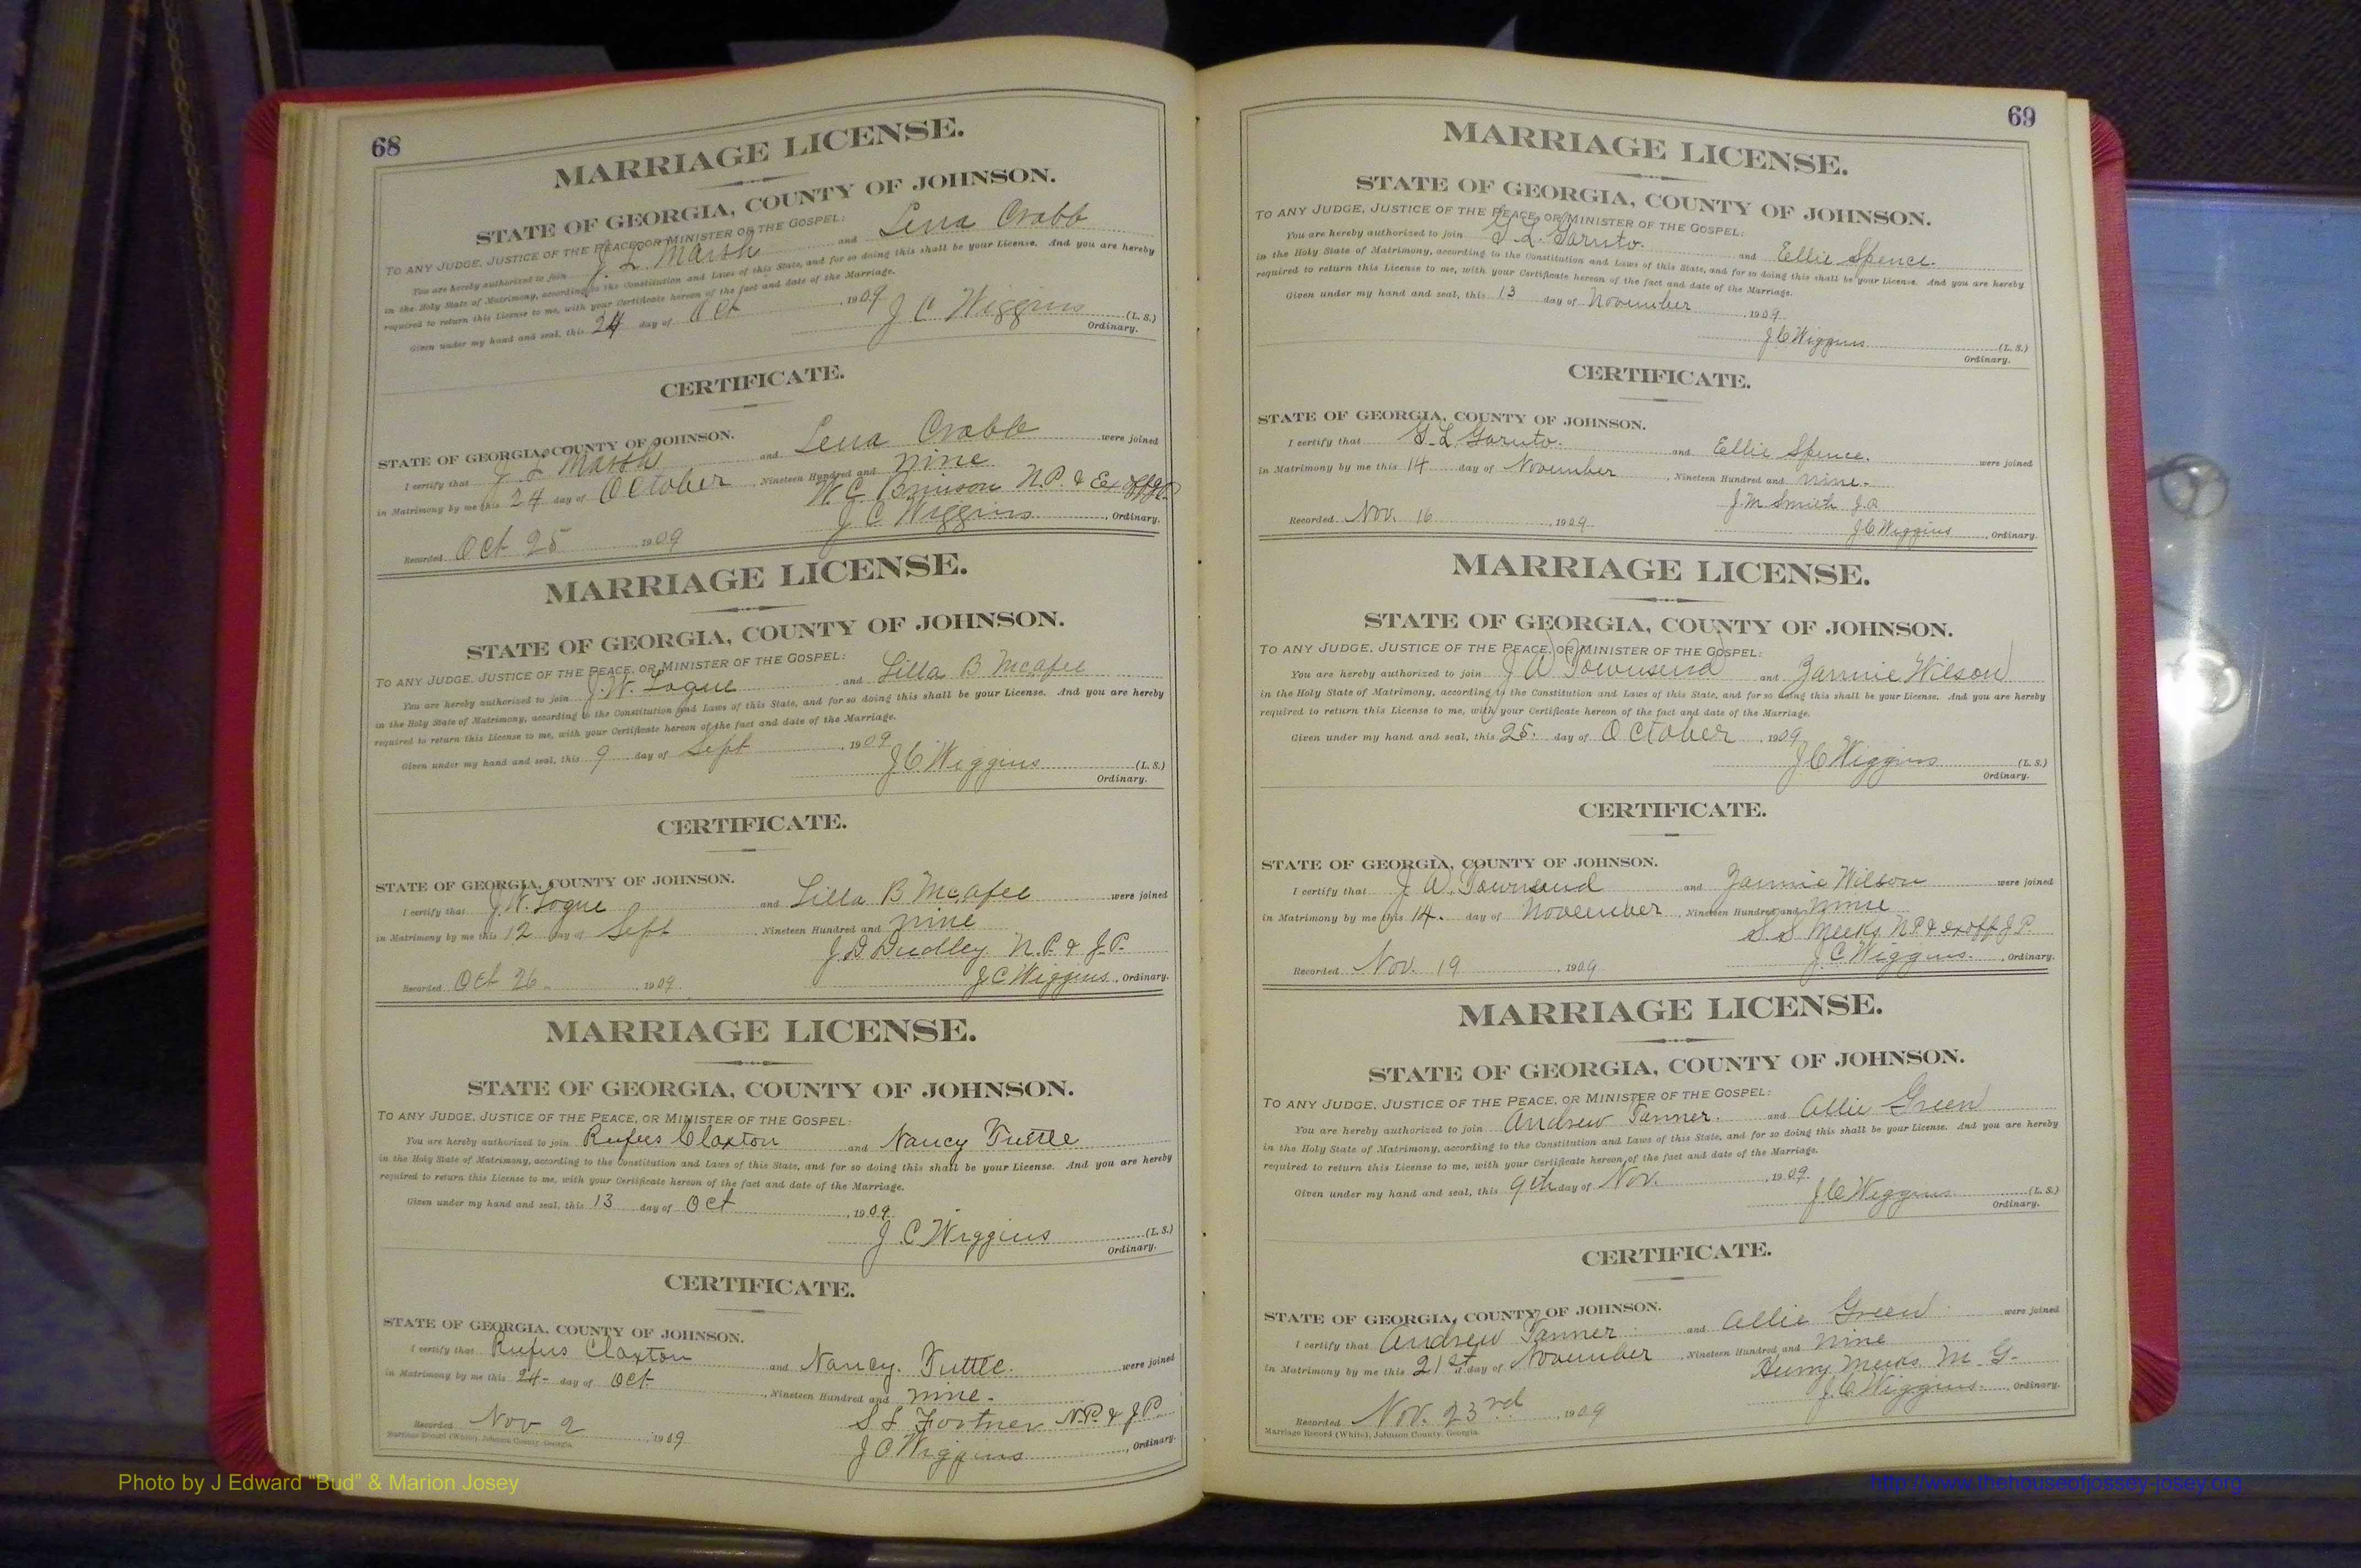 68
MARRIAGE LICENSE.
STATE OF GEORGIA, COUNTY OF JOHNSON.
TO ANY JUDGE, JUSTICE OF THE PEACE, OR MINISTER OF THE GOSPEL:
You are hereby authorized to join J. L. Marsh and Lena Crabb
in the Holy State of Matrimony, according to the Constitution and Laws of this State, and for so doing this shall be your License. And you are hereby
required to return this License to me, with your Certificate hereon of the fact and date of the Marriage.
Given under my hand and seal, this 24 day of Oct, 1909
J C Wiggins (L. S.)
Ordinary.
CERTIFICATE.
STATE OF GEORGIA, COUNTY OF JOHNSON.
I certify that J L Marsh and Lena Crabb were joined
in Matrimony by me this 24 day of October, Nineteen Hundred and nine
W. C. Brinson N.P. & Ex
Recorded Oct 25, 1909 J C Wiggins, Ordinary.
MARRIAGE LICENSE.
STATE OF GEORGIA, COUNTY OF JOHNSON.
TO ANY JUDGE, JUSTICE OF THE PEACE, OR MINISTER OF THE GOSPEL:
You are hereby authorized to join J. W. Logue and Lilla B McAfee
in the Holy State of Matrimony, according to the Constitution and Laws of this State, and for so doing this shall be your License. And you are hereby
required to return this License to me, with your Certificate hereon of the fact and date of the Marriage.
Given under my hand and seal, this 9 day of Sept, 1909
J C Wiggins (L. S.)
Ordinary.
CERTIFICATE.
STATE OF GEORGIA, COUNTY OF JOHNSON.
I certify that J. W. Logue and Lilla B McAfee were joined
in Matrimony by me this 12 day of Sept, Nineteen Hundred and nine
J D Dudley N.P. & J.P.
Recorded Oct 26, 1909. J C Wiggins, Ordinary.
MARRIAGE LICENSE.
STATE OF GEORGIA, COUNTY OF JOHNSON.
TO ANY JUDGE, JUSTICE OF THE PEACE, OR MINISTER OF THE GOSPEL:
You are hereby authorized to join Rufus Claxton and Nancy Tuttle
in the Holy State of Matrimony, according to the Constitution and Laws of this State, and for so doing this shall be your License. And you are hereby
required to return this License to me, with your Certificate hereon of the fact and date of the Marriage.
Given under my hand and seal, this 13 day of Oct, 1909.
J C Wiggins (L. S.)
Ordinary.
CERTIFICATE.
STATE OF GEORGIA, COUNTY OF JOHNSON.
I certify that Rufus Claxton and Nancy Tuttle. were joined
in Matrimony by me this 24- day of Oct., Nineteen Hundred and nine-
S L Fortner N.P. & J.P.
Recorded Nov 2, 1909 J C Wiggins, Ordinary.
Marriage Record (White), Johnson County, Georgia.
69
MARRIAGE LICENSE.
STATE OF GEORGIA, COUNTY OF JOHNSON.
TO ANY JUDGE, JUSTICE OF THE PEACE, OR MINISTER OF THE GOSPEL:
You are hereby authorized to join G. L. Garuto. and Ellie Spence.
in the Holy State of Matrimony, according to the Constitution and Laws of this State, and for so doing this shall be your License. And you are hereby
required to return this License to me, with your Certificate hereon of the fact and date of the Marriage.
Given under my hand and seal, this 13 day of November, 1909.
J C Wiggins (L. S.)
Ordinary.
CERTIFICATE.
STATE OF GEORGIA, COUNTY OF JOHNSON.
I certify that G. L. Garuto. and Ellie Spence. were joined
in Matrimony by me this 14 day of November, Nineteen Hundred and nine.
J. M Smith J.P.
Recorded Nov. 16, 1909. J C Wiggins, Ordinary.
MARRIAGE LICENSE.
STATE OF GEORGIA, COUNTY OF JOHNSON.
TO ANY JUDGE, JUSTICE OF THE PEACE, OR MINISTER OF THE GOSPEL:
You are hereby authorized to join J W Townsend and Jannie Wilson
in the Holy State of Matrimony, according to the Constitution and Laws of this State, and for so doing this shall be your License. And you are hereby
required to return this License to me, with your Certificate hereon of the fact and date of the Marriage.
Given under my hand and seal, this 25. day of October, 1909
J C Wiggins (L. S.)
Ordinary.
CERTIFICATE.
STATE OF GEORGIA, COUNTY OF JOHNSON.
I certify that J W. Townsend and Jannie Wilson were joined
in Matrimony by me this 14. day of November, Nineteen Hundred and nine
S. S Meeks N P & exoff J P.
Recorded Nov. 19, 1909 J. C Wiggins., Ordinary.
MARRIAGE LICENSE.
STATE OF GEORGIA, COUNTY OF JOHNSON.
TO ANY JUDGE, JUSTICE OF THE PEACE, OR MINISTER OF THE GOSPEL:
You are hereby authorized to join Andrew Tanner. and Allie Green
in the Holy State of Matrimony, according to the Constitution and Laws of this State, and for so doing this shall be your License. And you are hereby
required to return this License to me, with your Certificate hereon of the fact and date of the Marriage.
Given under my hand and seal, this 9th day of Nov., 1909.
J C Wiggins (L. S.)
Ordinary.
CERTIFICATE.
STATE OF GEORGIA, COUNTY OF JOHNSON.
I certify that Andrew Tanner and Allie Green were joined
in Matrimony by me this 21st day of November, Nineteen Hundred and nine
Henry Meeks M. G.
Recorded Nov. 23rd, 1909 J. C Wiggins., Ordinary.
Marriage Record (White), Johnson County, Georgia.
Photo by J Edward "Bud" & Marion Josey
http://www.thehouseofjossey-josey.org